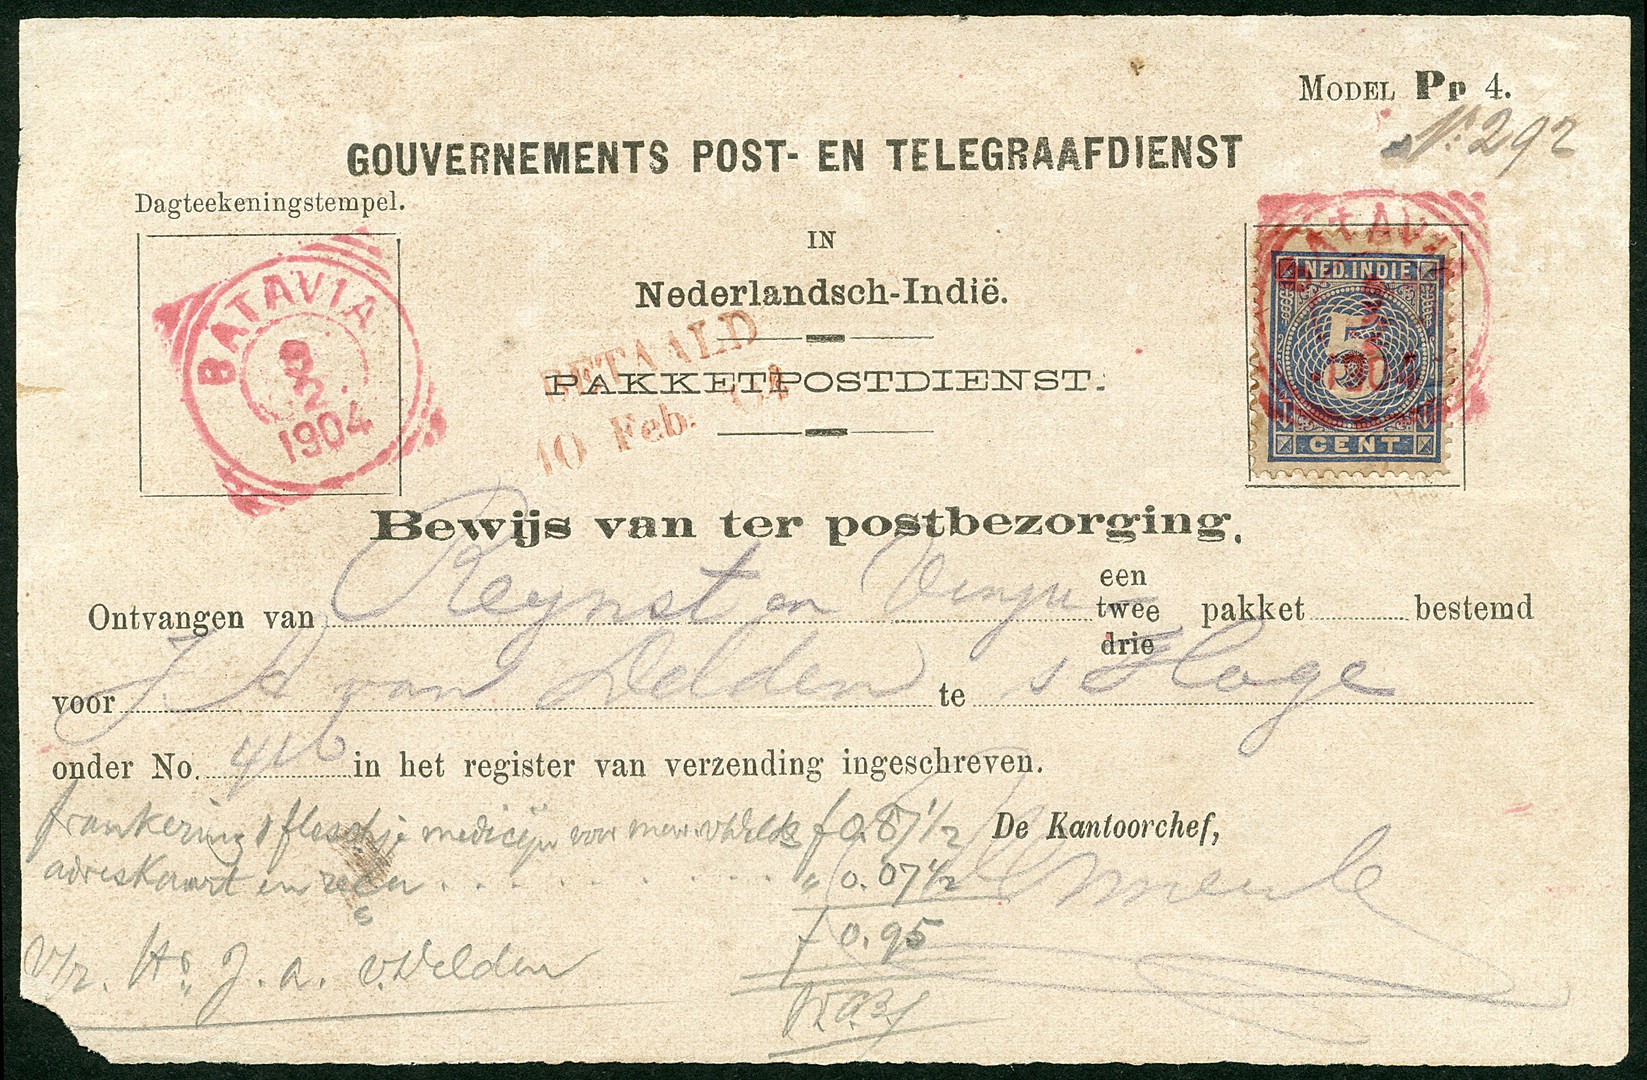 MODEL Pp 4.
No. 292
GOUVERNEMENTS POST- EN TELEGRAAFDIENST
Dagteekeningstempel.
IN
Nederlandsch-Indië.
BATAVIA
1904
BETAALD
10 Feb. 04
PAKKETPOSTDIENST.
BATAVIA
1904
NED. INDIE
5
CENT
Bewijs van ter postbezorging.
een
Ontvangen van Reynst en Vinju twee pakket bestemd
drie
voor J A van Delden te s Hage
onder No. 416 in het register van verzending ingeschreven.
frankering 1 fleschje medicijn voor mevr. vDelde f 0.87 1/2
De Kantoorchef,
adreskaart en " 0.07 1/2
f 0.95
v/r. Hr. J. A. v.Delden